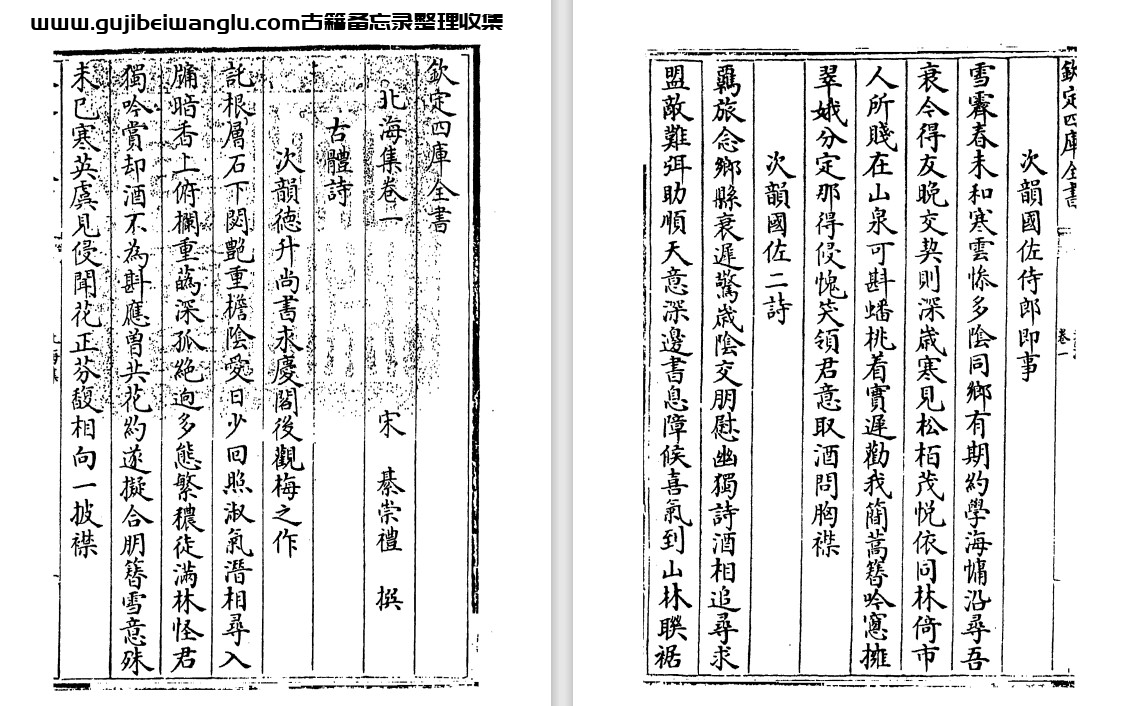 www.gujibeiwanglu.com古籍备忘录整理收集
欽定四庫全書
北海集卷一
宋 綦崇禮 撰
古體詩
次韻德升尚書求慶閣後觀梅之作
託根層石下閟艷重檐陰愛日少回照淑氣潛相尋入
牖暗香上俯欄重蘤深孤絶逈多態繁穠徒滿林怪君
獨吟賞却酒不為斟應曽共花約遂擬合朋簪雪意殊
未已寒英虞見侵聞花正芬馥相向一披襟
欽定四庫全書
卷一
次韻國佐侍郎即事
雪霽春未和寒雲惨多陰同鄉有期約學海慵沿尋吾
衰今得友晚交契則深嵗寒見松栢茂悦依同林倚市
人所賤在山泉可斟蟠桃着實遲勸我蕳蒿簪吟窻擁
翠娥分定那得侵愧笑領君意取酒問胸襟
次韻國佐二詩
羈旅念鄉縣衰遲驚嵗陰交朋慰幽獨詩酒相追尋求
盟敵難弭助順天意深邊書息障候喜氣到山林聫裾